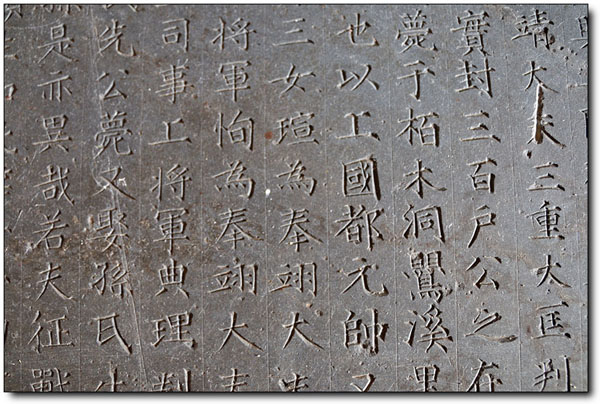 靖大夫三重大匡判
實封三百戶公之在
薨于栢木洞鸎溪里
也以工國都元帥又
三女瑄為奉翊大夫
將軍恂為奉翊大夫
司事工將軍典理判
先公薨又娶孫氏生
是亦異哉若夫征戰